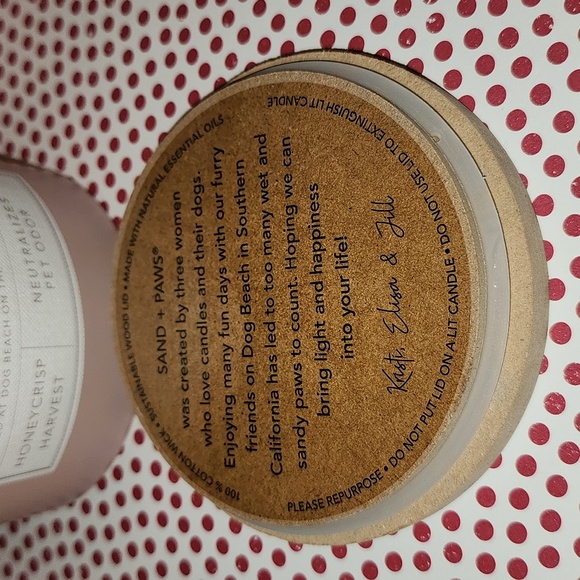 100 % COTTON WICK • SUSTAINABLE WOOD LID • MADE WITH NATURAL ESSENTIAL OILS
SAND + PAWS®
was created by three women
who love candles and their dogs.
Enjoying many fun days with our furry
friends on Dog Beach in Southern
California has led to too many wet and
sandy paws to count. Hoping we can
bring light and happiness
into your life!
Kristi, Elisa & Jill
PLEASE REPURPOSE • DO NOT PUT LID ON A LIT CANDLE • DO NOT USE LID TO EXTINGUISH LIT CANDLE
AT DOG BEACH ON
HONEYCRISP
HARVEST
NEUTRALIZES
PET ODOR